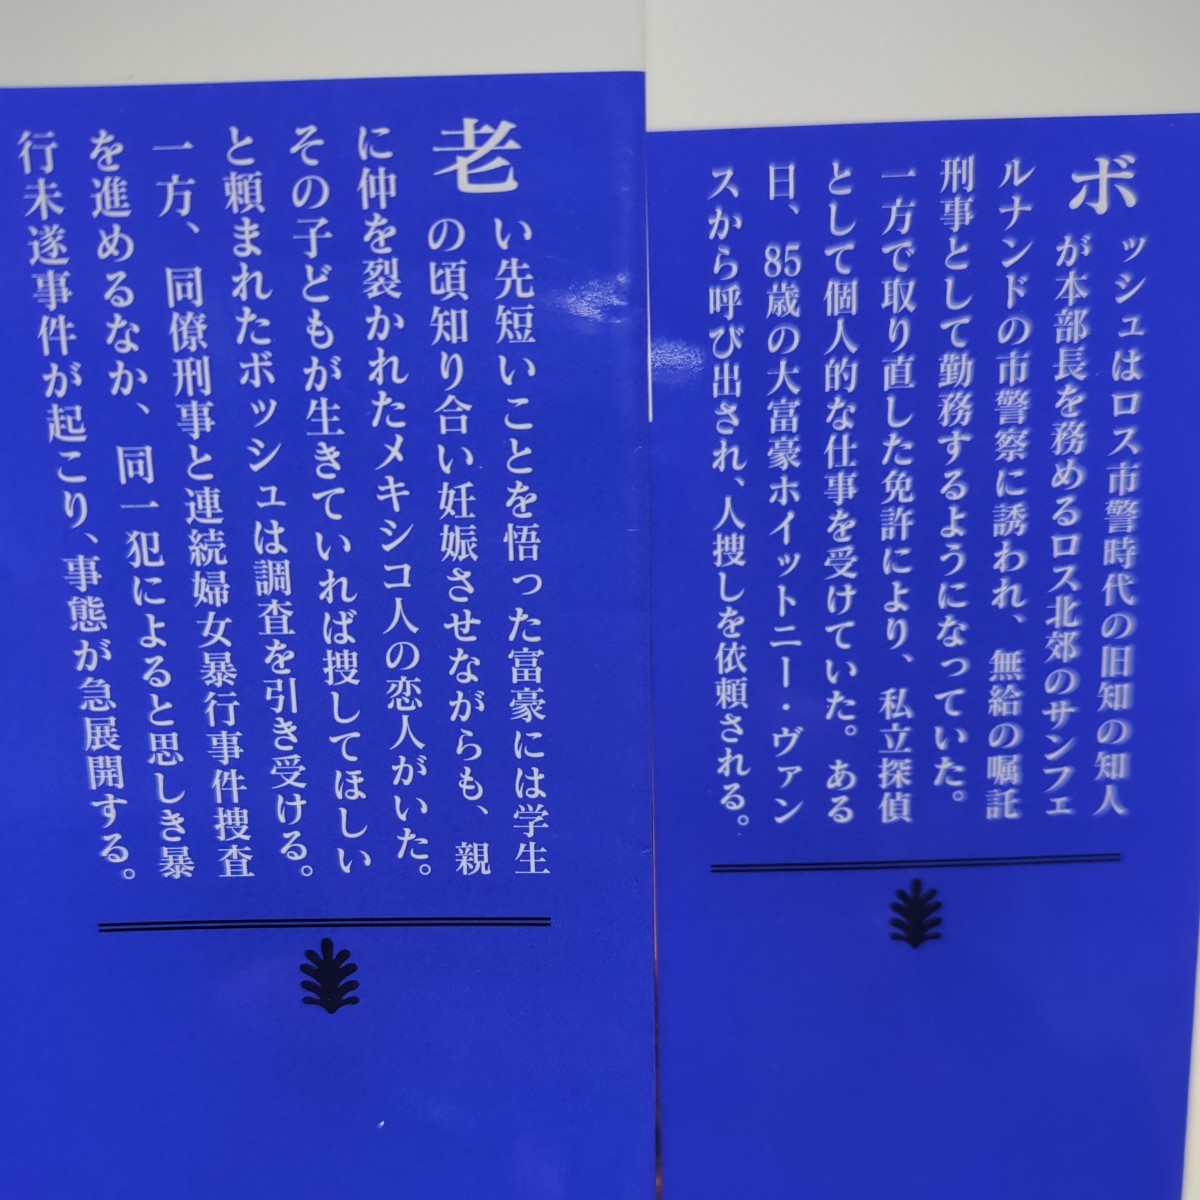 ボッシュはロス市警時代の旧知の知人
が本部長を務めるロス北郊のサンフェ
ルナンドの市警察に誘われ、無給の嘱託
刑事として勤務するようになっていた。
一方で取り直した免許により、私立探偵
として個人的な仕事を受けていた。ある
日、85歳の大富豪ホイットニー・ヴァン
スから呼び出され、人捜しを依頼される。
老い先短いことを悟った富豪には学生
の頃知り合い妊娠させながらも、親
に仲を裂かれたメキシコ人の恋人がいた。
その子どもが生きていれば捜してほしい
と頼まれたボッシュは調査を引き受ける。
一方、同僚刑事と連続婦女暴行事件捜査
を進めるなか、同一犯によると思しき暴
行未遂事件が起こり、事態が急展開する。